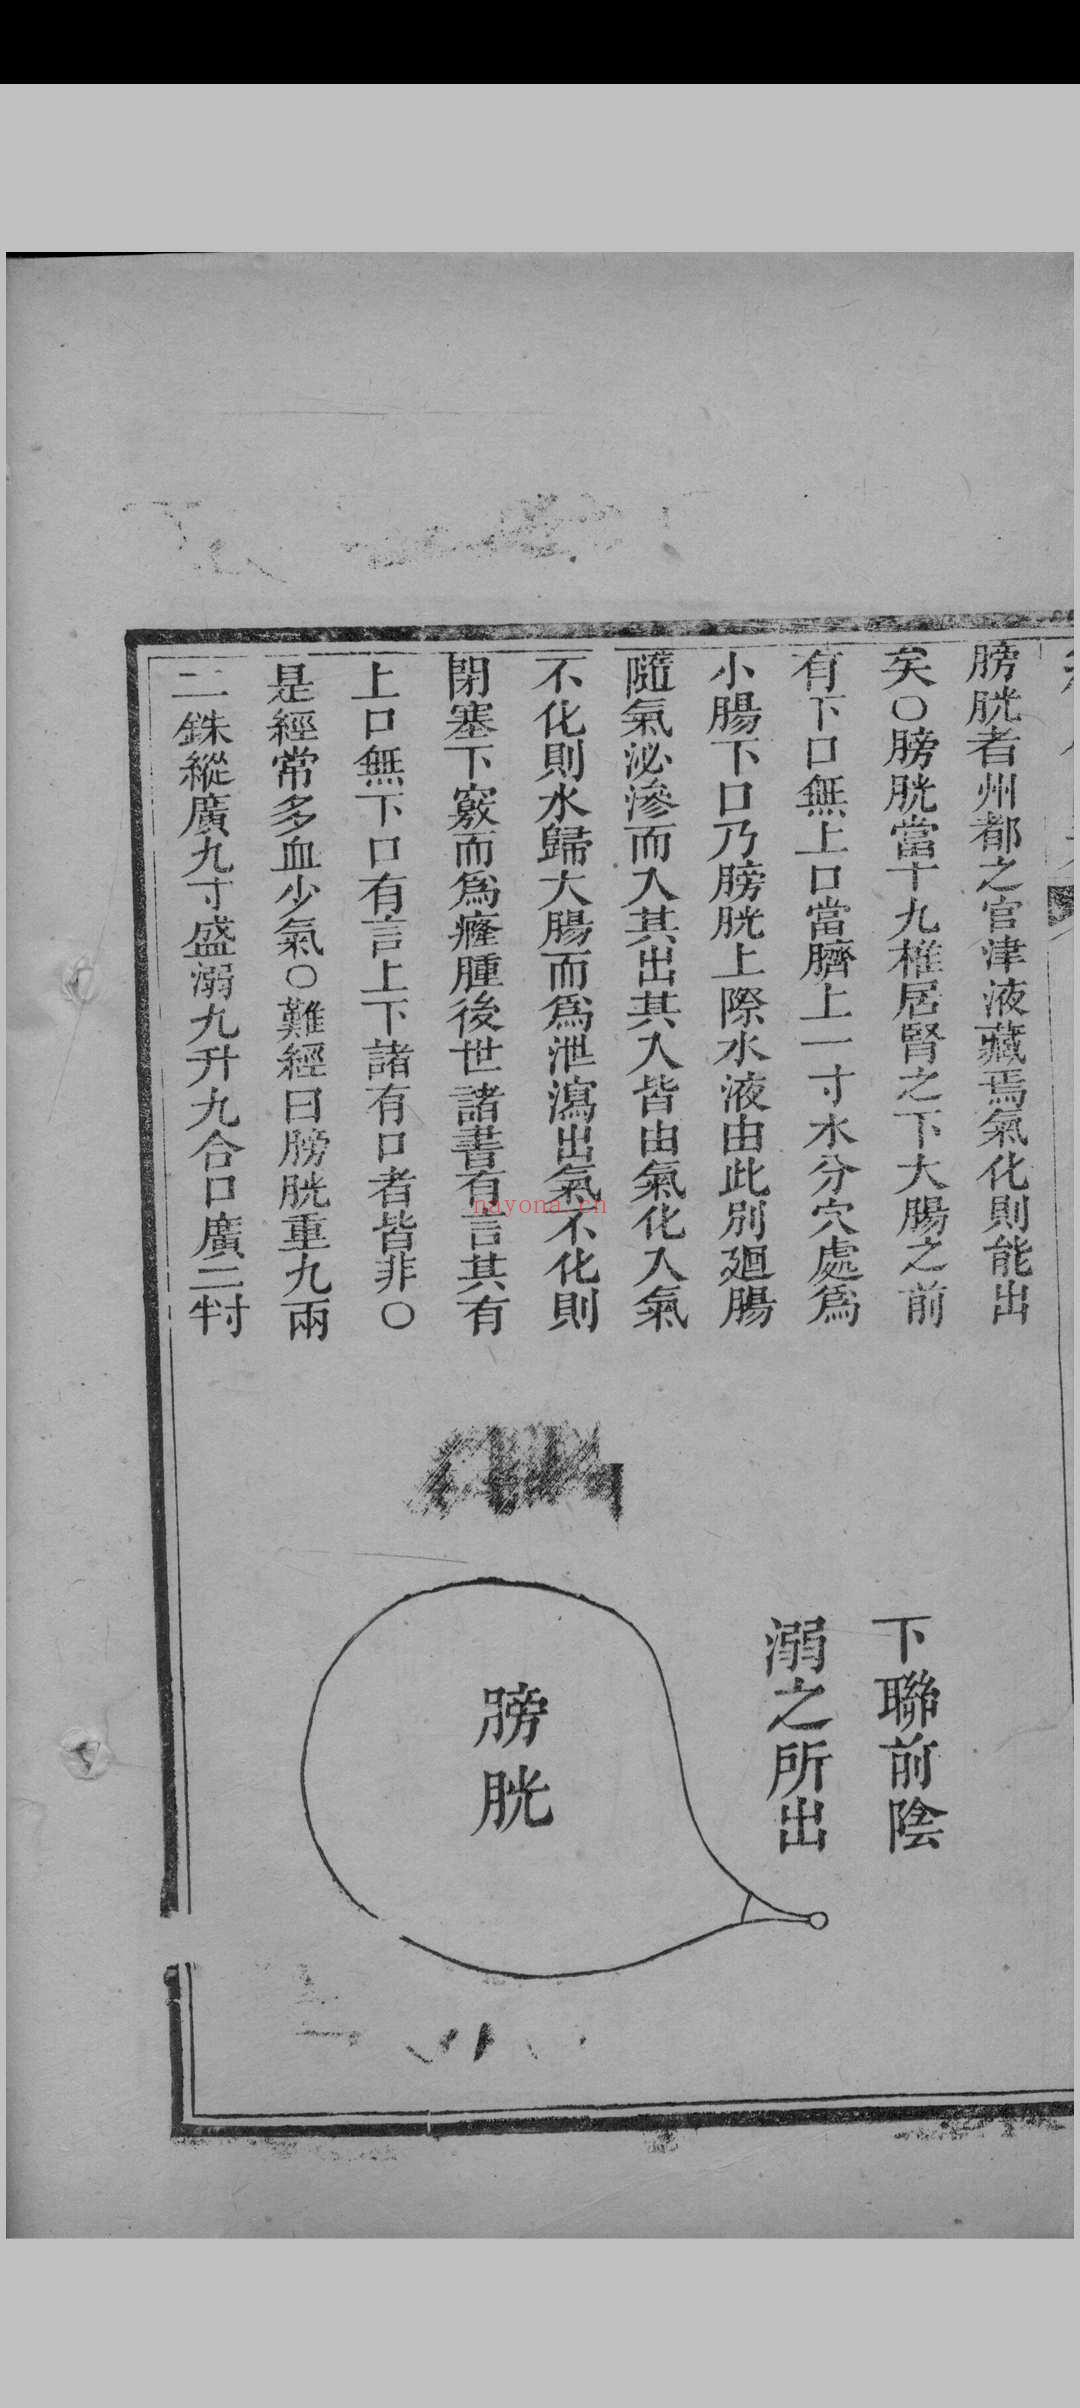 膀胱者州都之官津液藏焉氣化則能出
矣○膀胱當十九椎居腎之下大腸之前
有下口無上口當臍上一寸水分穴處爲
小腸下口乃膀胱上際水液由此別廻腸
隨氣泌滲而入其出其入皆由氣化入氣
不化則水歸大腸而爲泄瀉出氣不化則
閉塞下竅而爲癃腫後世諸書有言其有
上口無下口有言上下諸有口者皆非○
是經常多血少氣○難經曰膀胱重九兩
二銖縱廣九寸盛溺九升九合口廣二寸
下聯前陰
溺之所出
膀胱
nayona.cn